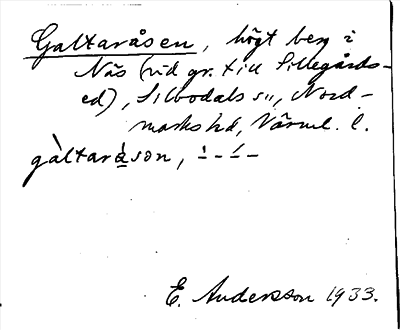 Galtaråsen, högt berg i
Näs (vid gr. till Sillegårds-
ed), Silbodals sn, Nord-
marks hd, Värml. l.
gàltaråsən, ∸-∸-
E. Andersson 1933.